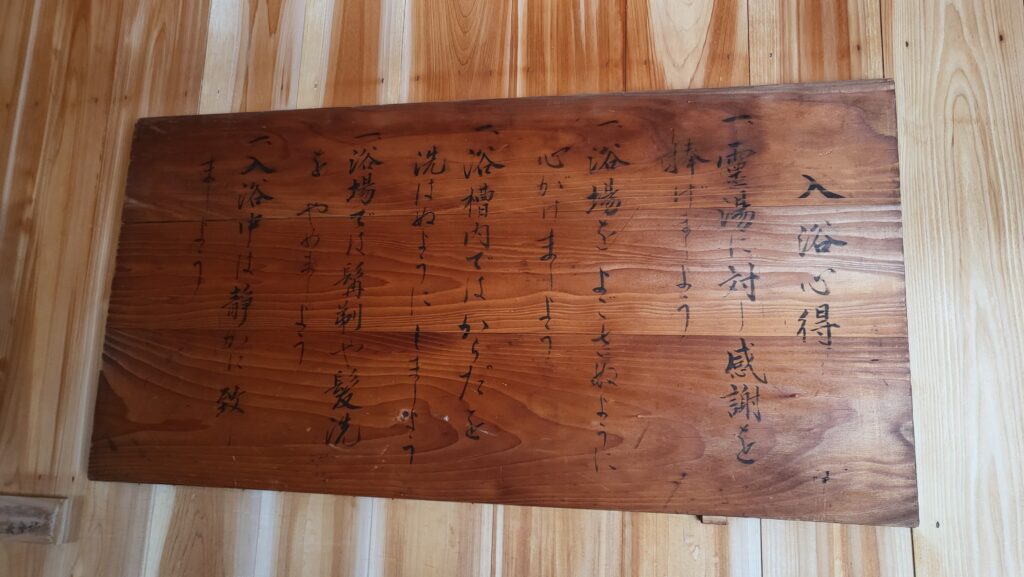 入浴心得
一、霊湯に対し感謝を
捧げましょう
一、浴場をよごさぬように
心がけましょう
一、浴槽内ではからだを
洗はぬようにしましょう
一、浴場では髯剃や髪洗
を やめましょう
一、入浴中は静かに致
ましょう